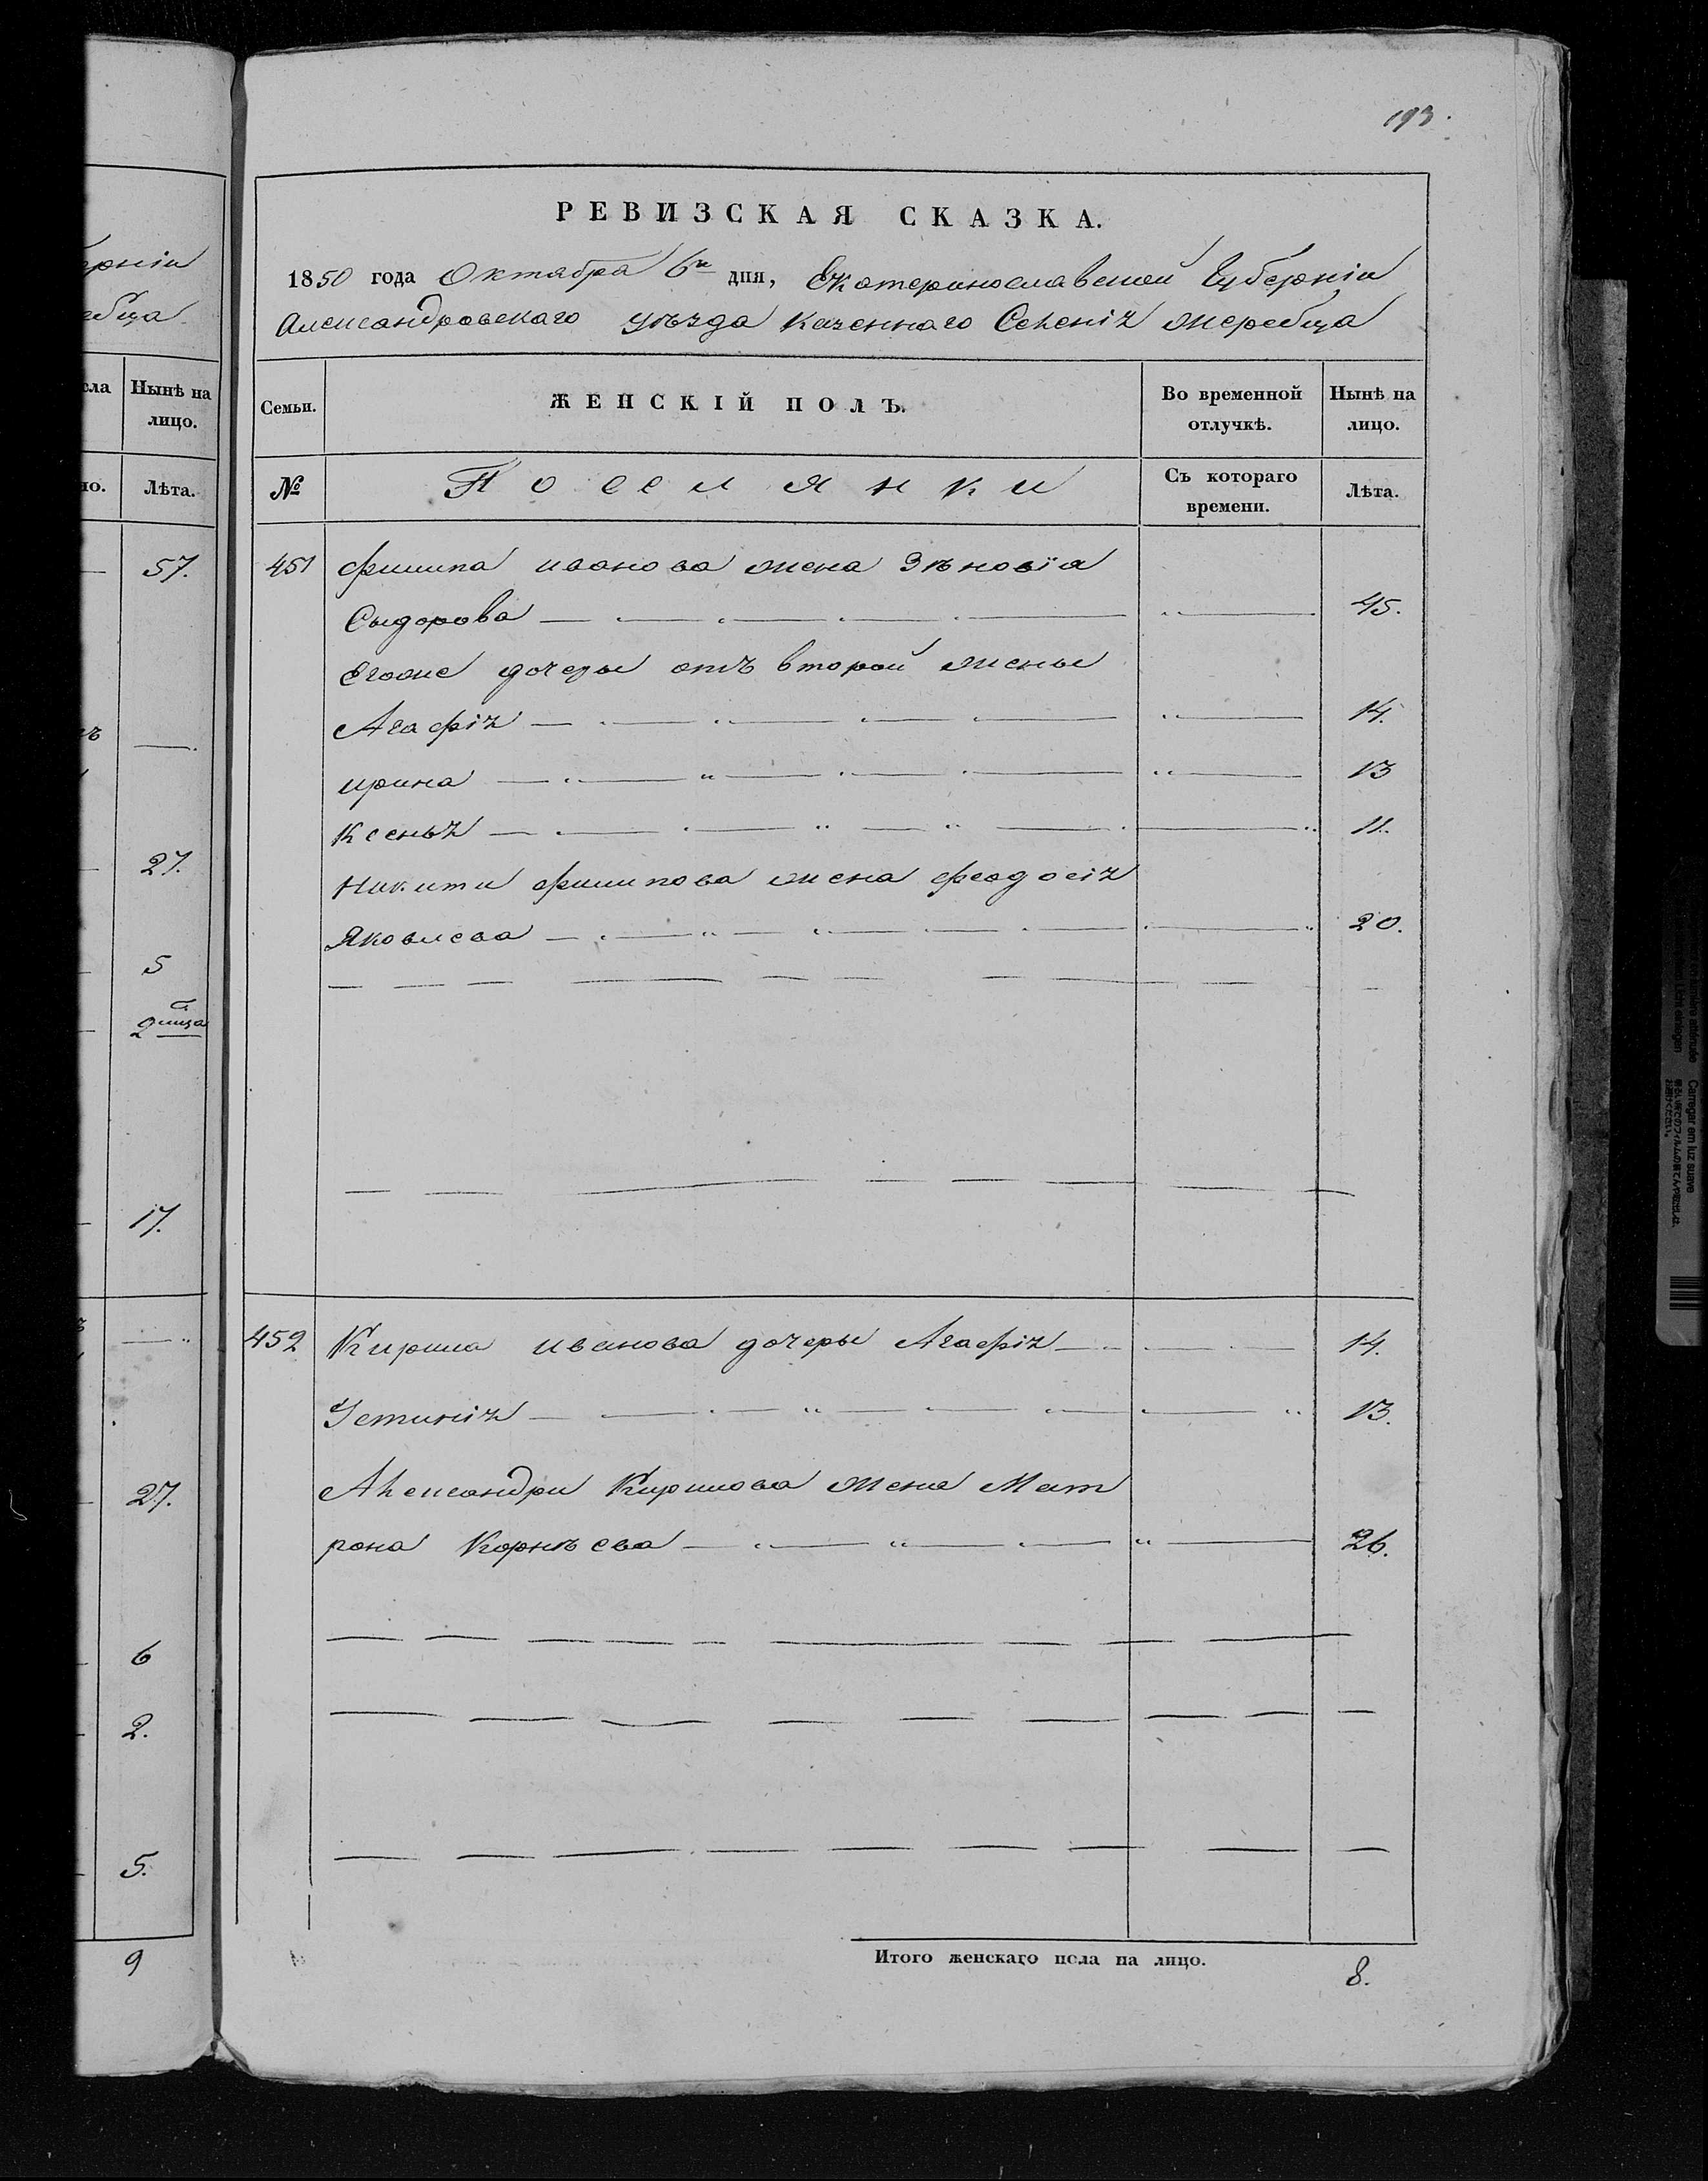 193.
РЕВИЗСКАЯ СКАЗКА.
1850 года Октября 6го дня, Екатеринославской Губерніи
Александровскаго уѣзда казеннаго Селенія жеребца
Семьи.
ЖЕНСКІЙ ПОЛЪ.
Во временной отлучкѣ.
Нынѣ на лицо.
№
Поселянки
Съ котораго времени.
Лѣта.
451 филипа иванова жена Зѣновія
Сыдорова 45.
Егоже дочеры отъ второй жены
Агафія 14.
ирина 13
Ксенья 11.
Никити филипова жена феодосія
Яковлева 20.
452 Кирила иванова дочеры Агафія 14.
Устинія 13.
Александри Кирилова жена Мат
рона Корнѣева 26.
Итого женскаго пола на лицо. 8.
ерніи
ребца
сла
Нынѣ на
лицо.
но.
Лѣта.
57.
27.
5
17.
27.
6
2.
5.
9